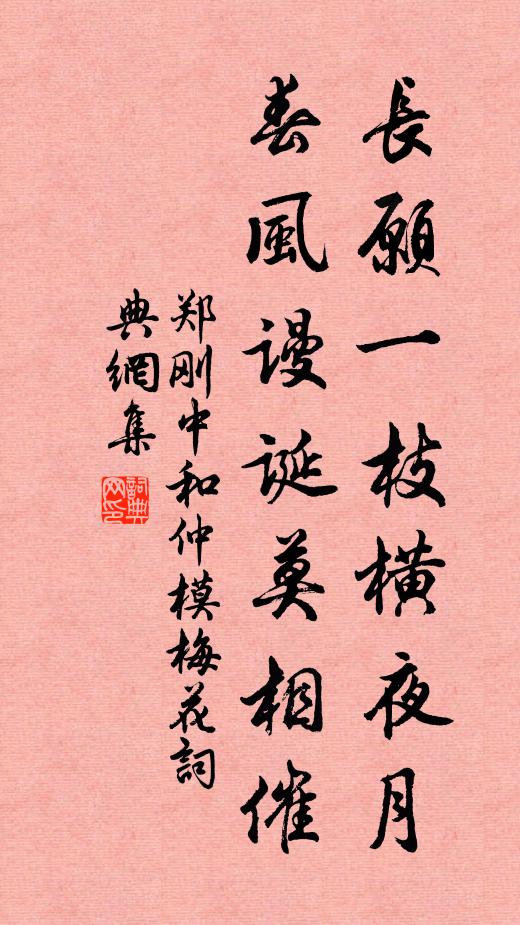 長願一枝橫夜月
春風謾誕莫相催
郑刚中和仲模梅花詞
典網集
詞典网印